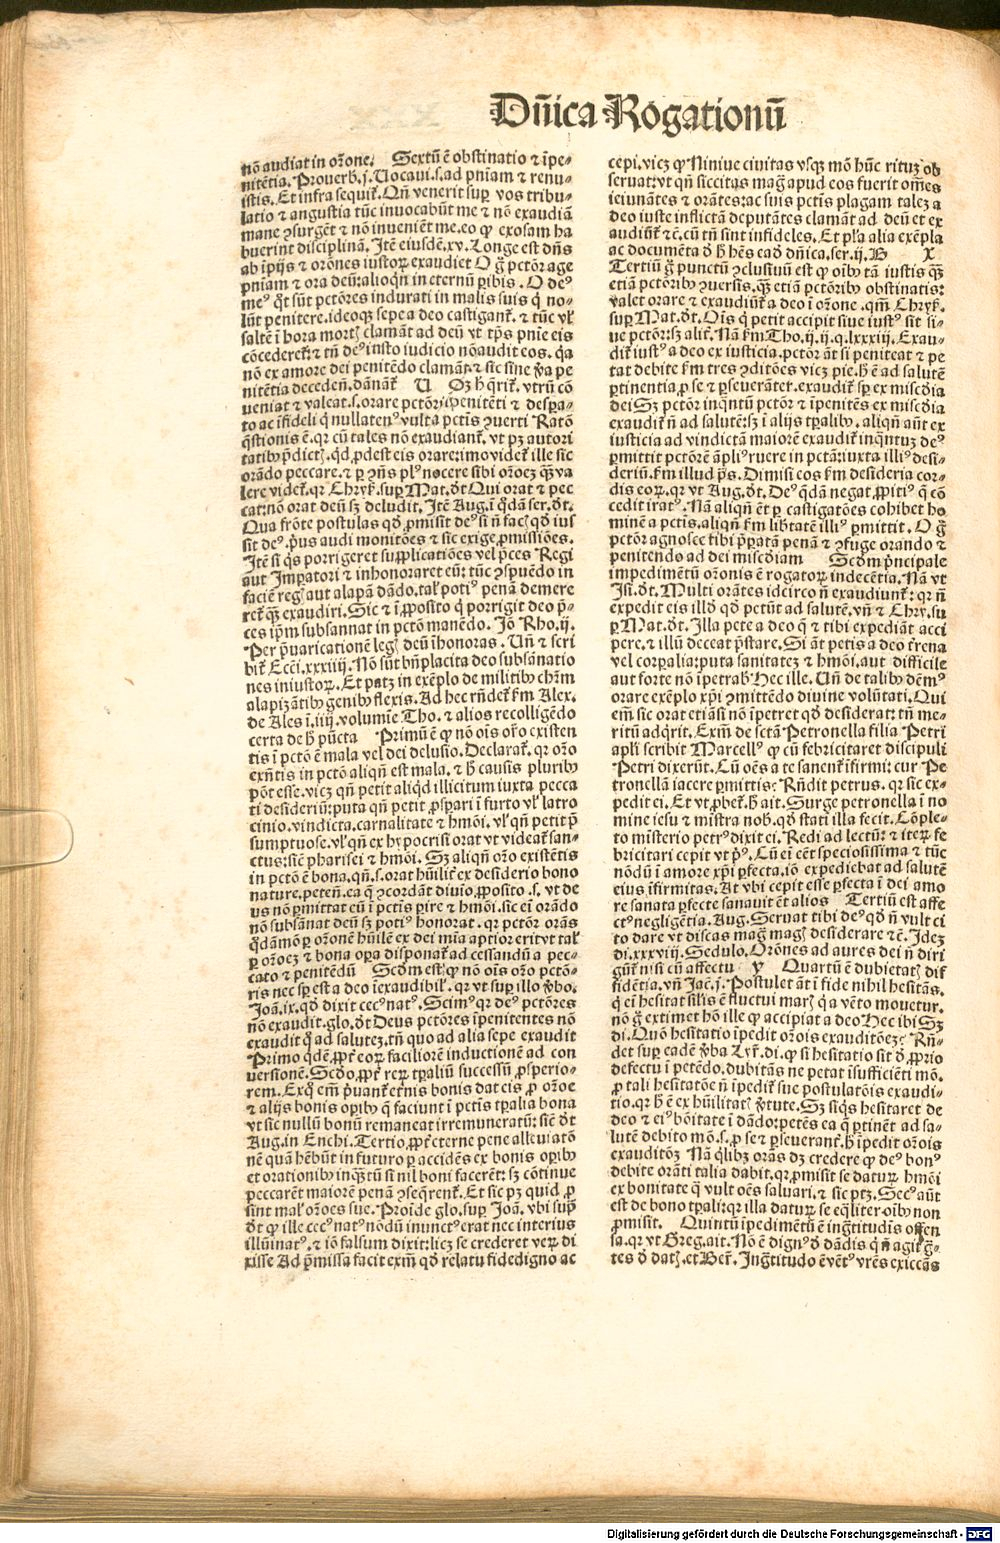 Dñica Rogationũ
nõ audiat in orõne. Sextũ ẽ obstinatio ⁊ ĩpe-
nitẽtia. Proverb. j. Uocavi .s. ad pniam ⁊ renu-
istis. Et infra sequit᷑. Qñ venerit sup vos tribu-
latio ⁊ angustia tũc invocabũt me ⁊ nõ exaudiã
mane ꝯsurgẽt ⁊ nõ invenient me. eo ꝙ exosam ha
buerint disciplinã. Itẽ eiusdẽ. xv. Longe est dñs
ab ĩpijs ⁊ orõnes iustoꝝ exaudiet O g̃ pctõr age
pniam ⁊ ora deũ: alioqñ in eternũ ꝑibis. O deꝰ
meꝰ q̃t sũt pctõres indurati in malis suis q̇ no-
lũt penitere. ideoqꝫ sepe a deo castigant᷑. ⁊ tũc vl̕
saltẽ ĩ hora mortꝭ clamãt ad deũ vt tp̃s pnĩe eis
cõcederet᷑: ⁊ tñ deꝰ iusto iudicio nõ audit eos. q̇a
nõ ex amore dei penitẽdo clamãt. ⁊ sic sine v̾a pe
nitẽtia decedeñ. dãnãt᷑ U Sꝫ h̓ q̃rit᷑. vtrũ cõ
veniat ⁊ valeat .s. orare pctõri ĩpenitẽti ⁊ despa-
to ac ĩfideli q̇ nullatenꝰ vult a pctis ꝯverti Ratõ
q̃stionis ẽ. qꝛ cũ tales nõ exaudiant᷑. vt pꝫ autori
tatibꝰ p̃dictꝭ. qd̓ ꝓdest eis orare: imo videt᷑ ille sic
orãdo peccare. ⁊ ꝑ ꝯñs plꝰ nocere sibi orõeꝫ q̃ꝫ va
lere videt᷑. qꝛ Chryẜ. sup Mat. dt̓ Qui orat ⁊ pec
cat: nõ orat deũ sꝫ deludit. Itẽ Aug. ĩ q̇dã ser. dt̓.
Qua frõte postulas qd̓ ꝓmisit deꝰ si ñ facꝭ qd̓ ius
sit deꝰ. p̓us audi monitões ⁊ sic exige ꝓmissiões.
Itẽ si q̇s porrigeret supplicatiões vel p̃ces Regi
aut Imꝑatori ⁊ inhonoraret eũ: tũc ꝯspuẽdo in
faciẽ regꝭ aut alapã dãdo. tal̕ potiꝰ penã demere
ret᷑ q̃ꝫ exaudiri. Sic ⁊ ĩ ꝓposito q̇ porrigit deo p̃-
ces ip̃m subsannat in pctõ manẽdo. Jõ Rho. ij.
Per p̃uaricationẽ legꝭ deũ ĩhonoras. Uñ ⁊ scri
bit᷑ Eccĩ. xxxiiij. Nõ sũt bñplacita deo subsãnatio
nes iniustoꝝ. Et patꝫ in exẽplo de militibꝰ chr̃m
alapizãtibꝰ genibꝰ flexis. Ad hec rñdet᷑ ẜm Alex.
de Ales ĩ. iiij. volumĩe Tho. ⁊ alios recolligẽdo
certa de h̓ pũcta Primũ ẽ ꝙ nõ oĩs orõ existen
tis ĩ pctõ ẽ mala vel dei delusio. Declarat᷑. qꝛ orõ
exñtis in pctõ aliqñ est mala. ⁊ h̓ causis pluribꝰ
põt esse. vicꝫ qñ petit aliqd̓ illicitum iuxta pecca
ti desideriũ: puta qñ petit ꝓspari ĩ furto vl̕ latro
cinio. vindicta. carnalitate ⁊ hmõi. vl̕ qñ petit p̃
sumptuose. vl̕ qñ ex hypocrisi orat vt videat᷑ san-
ctus: sic̃ pharisei ⁊ hmõi. Sꝫ aliqñ orõ existẽtis
in pctõ ẽ bona. qñ .s. orat hũilit̓ ex desiderio bono
nature. peteñ. ea q̃ ꝯcordãt divĩo ꝓposito .s. vt de
us nõ ꝑmittat eũ ĩ pctis ꝑire ⁊ hmõi. sic ẽi orãdo
nõ subsãnat deũ sꝫ potiꝰ honorat. qꝛ pctõr orãs
q̇dãmõ ꝑ orõnẽ hũilẽ ex dei mĩa aptior erit vt tal̕
ꝑ orõeꝫ ⁊ bona oꝑa disponat᷑ ad cessandũ a pec-
cato ⁊ penitẽdũ Scdm est ꝙ nõ oĩs orõ pctõ-
ris nec sꝑ est a deo ĩexaudibil̕. qꝛ vt sup illo v̾bo.
Joã. ix. qd̓ dixit cecꝰ natꝰ. Scimꝰ qꝛ deꝰ pctõres
nõ exaudit. glo. dt̓ Deus pctõres ĩpenitentes nõ
exaudit q̃ ad salutẽ. tñ quo ad alia sepe exaudit
Primo q̇dẽ ꝓpt̓ eoꝝ faciliorẽ inductionẽ ad con
versionẽ. Scd̓o ꝓpt̓ reꝝ tꝑaliũ successũ ꝓsperio-
rem. Ex q̇ em̃ p̓uant᷑ et̓nis bonis dat eis ꝓ orõe
⁊ alijs bonis oꝑibꝰ q̃ faciunt ĩ pctis tꝑalia bona
vt sic nullũ bonũ remaneat irremuneratũ: sic̃ dt̓
Aug. in Enchi. Tertio ꝓpt̓ eterne pene alleviatõ
nẽ quã hẽbũt in futuro ꝑ accidẽs ex bonis oꝑibꝰ
et orationibꝰ inq̃ꝫtũ si nil boni facerẽt: sꝫ cõtinue
peccarẽt maiorẽ penã ꝯseq̃rent᷑. Et sic pꝫ quid ꝓ
sint mal̕ orões sue. Proĩde glo. sup Joã. vbi sup̃
dt̓ ꝙ ille cecꝰ natꝰ nõdũ inunctꝰ erat nec interius
illũinatꝰ. ⁊ iõ falsum dixit: licꝫ se crederet veꝝ di
xisse Ad p̃missa facit exm̃ qd̓ relatu fidedigno ac
cepi. vicꝫ ꝙ Ninive civitas vsqꝫ mõ hũc rituꝫ ob
servat: vt qñ siccitas mag̃ apud eos fuerit om̃es
ieiunãtes ⁊ orãtes: ac suis pctis plagam taleꝫ a
deo iuste inflictã deputãtes clamãt ad deũ et ex
audiũt᷑ ⁊c̃. cũ tñ sint infideles. Et pl̕a alia exẽpla
ac documẽta d̓ h̓ hẽs ead̓ dñica. ser. ij. B X
Tertiũ g̃ punctũ ꝯclusiuũ est ꝙ oĩbꝰ tã iustis q̃ꝫ
etiã pctõribꝰ ꝯversis. q̃ꝫ etiã pctõribꝰ obstinatis:
valet orare ⁊ exaudiũt᷑ a deo ĩ orõne. qm̃ Chryẜ.
sup Mat. dt̓. Oĩs q̇ petit accipit sive iustꝰ sit si-
ve pctõr: sꝫ alit̓. Nã ẜm Tho. ij. ij. q. lxxxiij. Exau-
dit᷑ iustꝰ a deo ex iusticia. pctõr ãt si peniteat ⁊ pe
tat debite ẜm tres ꝯditões vicꝫ pie. h̓ ẽ ad salutẽ
ꝑtinentia. ꝓ se ⁊ ꝑseverãter. exaudit᷑ sꝑ ex miscd̓ia
dei Sꝫ pctõr inq̃ntũ pctõr ⁊ ĩpenitẽs ex miscd̓ia
exaudit᷑ ñ ad salutẽ: sꝫ ĩ alijs tꝑalibꝰ. aliqñ aũt ex
iusticia ad vindictã maiorẽ exaudit᷑ inq̃ntuꝫ deꝰ
ꝑmittit pctõrẽ ãpliꝰ ruere in pctã: iuxta illiꝰ desi-
deriũ. ẜm illud p̃s. Dimisi eos ẜm desideria cor-
dis eoꝝ. qꝛ vt Aug. dt̓. Deꝰ q̃dã negat ꝓpitiꝰ q̃ cõ
cedit iratꝰ. Nã aliqñ ẽt ꝑ castigatões cohibet ho
minẽ a pctis. aliqñ ẜm lib̓tatẽ illiꝰ ꝑmittit. O g̃
pctõr agnosce tibi p̃ꝑatã penã ⁊ ꝯfuge orando ⁊
penitendo ad dei miscd̓iam Scdm p̓ncipale
impedimẽtũ orõnis ẽ rogatoꝝ indecẽtia. Nã vt
Isĩ. dt̓. Multi orãtes idcirco ñ exaudiunt᷑: qꝛ ñ
expedit eis illd̓ qd̓ petũt ad salutẽ. vñ ⁊ Chry. su
ꝑ Mat. dt̓. Illa pete a deo q̃ ⁊ tibi expediãt acci
pere. ⁊ illũ deceat p̃stare. Si ãt petis a deo t̓rena
vel corꝑalia: puta sanitateꝫ ⁊ hmõi. aut difficile
aut forte nõ ĩpetrab̓ Hec ille. Uñ de talibꝰ dẽmꝰ
orare exẽplo xp̃i ꝯmittẽdo divine volũtati. Qui
em̃ sic orat etiãsi nõ ĩpetret qd̓ desiderat: tñ me-
ritũ adq̇rit. Exm̃. de sctã Petronella filia Petri
apl̕i scribit Marcellꝰ ꝙ cũ febricitaret discipuli
Petri dixerũt. Cũ oẽs a te sanent᷑ ĩfirmi: cur Pe
tronellã iacere ꝑmittis? Rñdit petrus. qꝛ sic ex-
pedit ei. Et vt ꝓbet᷑. h̓ ait. Surge petronella ĩ no
mine iesu ⁊ mĩstra nob̓. qd̓ stati illa fecit. Cõple-
to misterio petrꝰ dixit ei. Redi ad lectũ: ⁊ iteꝝ fe
bricitari cepit vt p̓ꝰ. Cũ ei cẽt speciosissima ⁊ tũc
nõdũ ĩ amore xp̃i ꝑfecta. iõ expediebat ad salutẽ
eius ĩfirmitas. At vbi cepit esse ꝑfecta ĩ dei amo
re sanata ꝑfecte sanavit ẽt alios Tertiũ est affe
ctꝰ negligẽtia. Aug. Servat tibi deꝰ qd̓ ñ vult ci
to dare vt discas mag̃ magꝭ desiderare ⁊c̃. Ideꝫ
di. xxxviij. Sedulo. Orõnes ad aures dei ñ diri
gũt᷑ nisi cũ affectu Y Quartũ ẽ dubietatꝭ dif
fidẽtia. vñ Jac̃. j. Postulet ãt ĩ fide nihil hesitãs.
q̇ ei hesitat sil̕is ẽ fluctui marꝭ q̇ a vẽto movetur.
nõ g̃ extimet hõ ille ꝙ accipiat a deo Hec ibi Sꝫ
di. Quõ hesitatio ĩpedit orõis exauditõeꝫ? Rñ-
det sup eadẽ v̾ba Lyr̃. di. ꝙ si hesitatio sit d̓ ꝓprio
defectu ĩ petẽdo. dubitãs ne petat ĩsufficiẽti mõ.
ꝓ tali hesitatõe ñ ĩpedit᷑ sue postulatõis exaudi-
tio. qꝛ h̓ ẽ ex hũilitatꝭ v̾tute. Sꝫ siq̇s hesitaret de
deo ⁊ eiꝰ bõitate ĩ dãdo: petẽs ea q̃ ꝑtinẽt ad sa-
lutẽ debito mõ .s. ꝓ se ⁊ ꝑseverant᷑. h̓ ĩpedit orõis
exauditõꝫ Nã q̇libꝫ orãs dꝫ credere ꝙ deꝰ bonꝰ
debite orãti talia dabit. qꝛ ꝓmisit se datuꝝ hmõi
ex bonitate q̃ vult oẽs saluari. ⁊ sic ptꝫ. Secꝰ aũt
est de bono tꝑali: qꝛ illa datuꝝ se eq̃liter oĩbꝰ non
ꝓmisit. Quintũ ĩpedimẽtũ ẽ ing̃titudĩs offen
sa. qꝛ vt Greg. ait. Nõ ẽ dignꝰ d̓ dãdis q̇ ñ agit g̃-
tes d̓ datꝭ. et Ber̃. Ing̃titudo ẽ vẽtꝰ vrẽs exiccãs